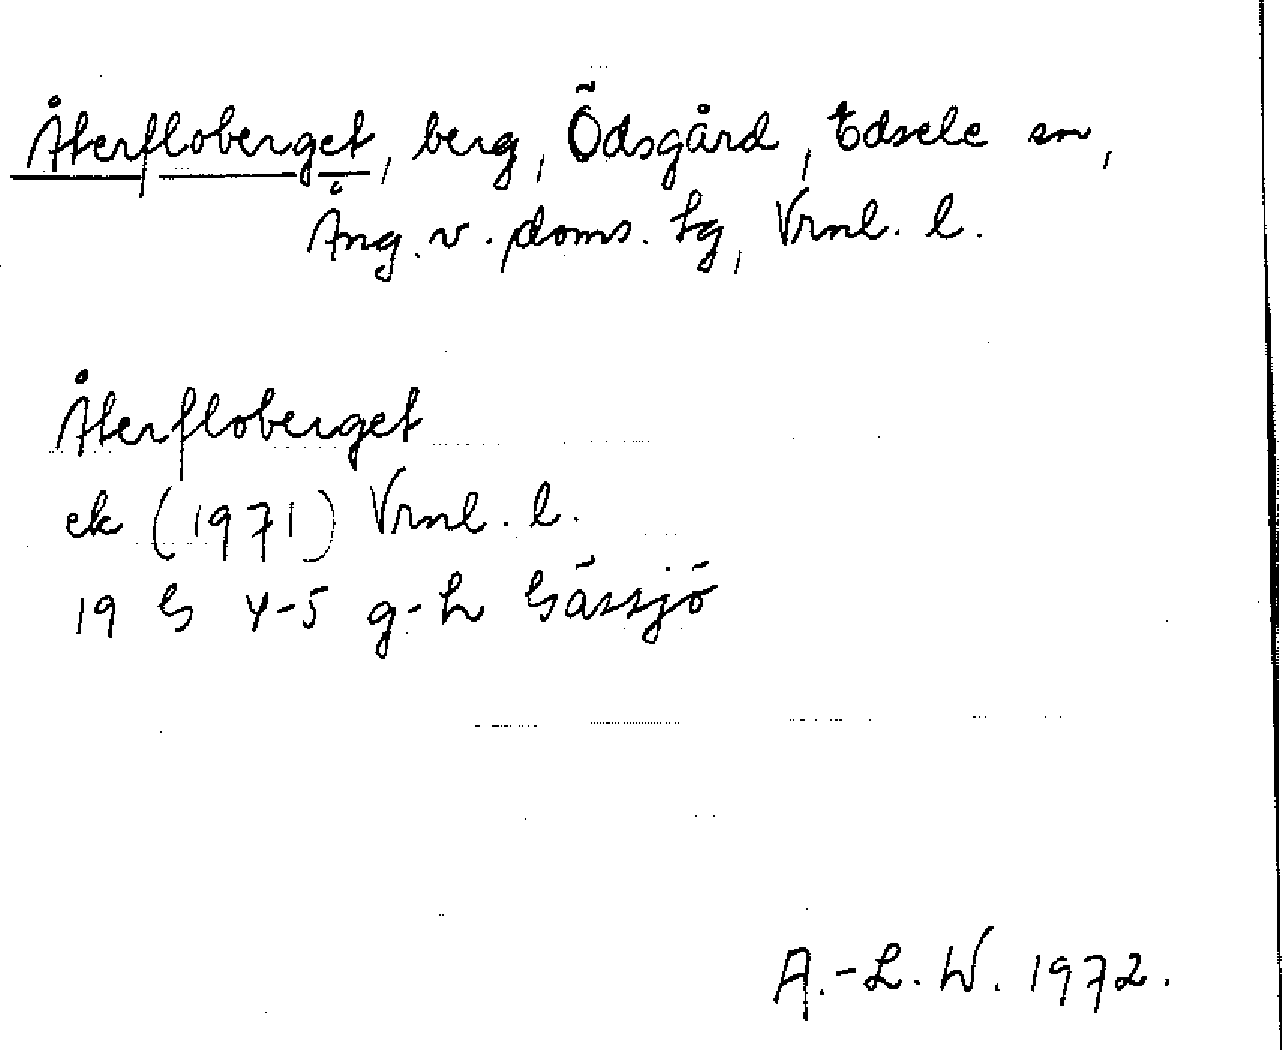 Återfloberget, berg, Ödsgård, Edsele sn,
Ång. v. doms. tg, Vrnl. l.
Återfloberget
ek (1971) Vrnl. l.
19 G 4-5 g-h Gässjö
A.-L. W. 1972.